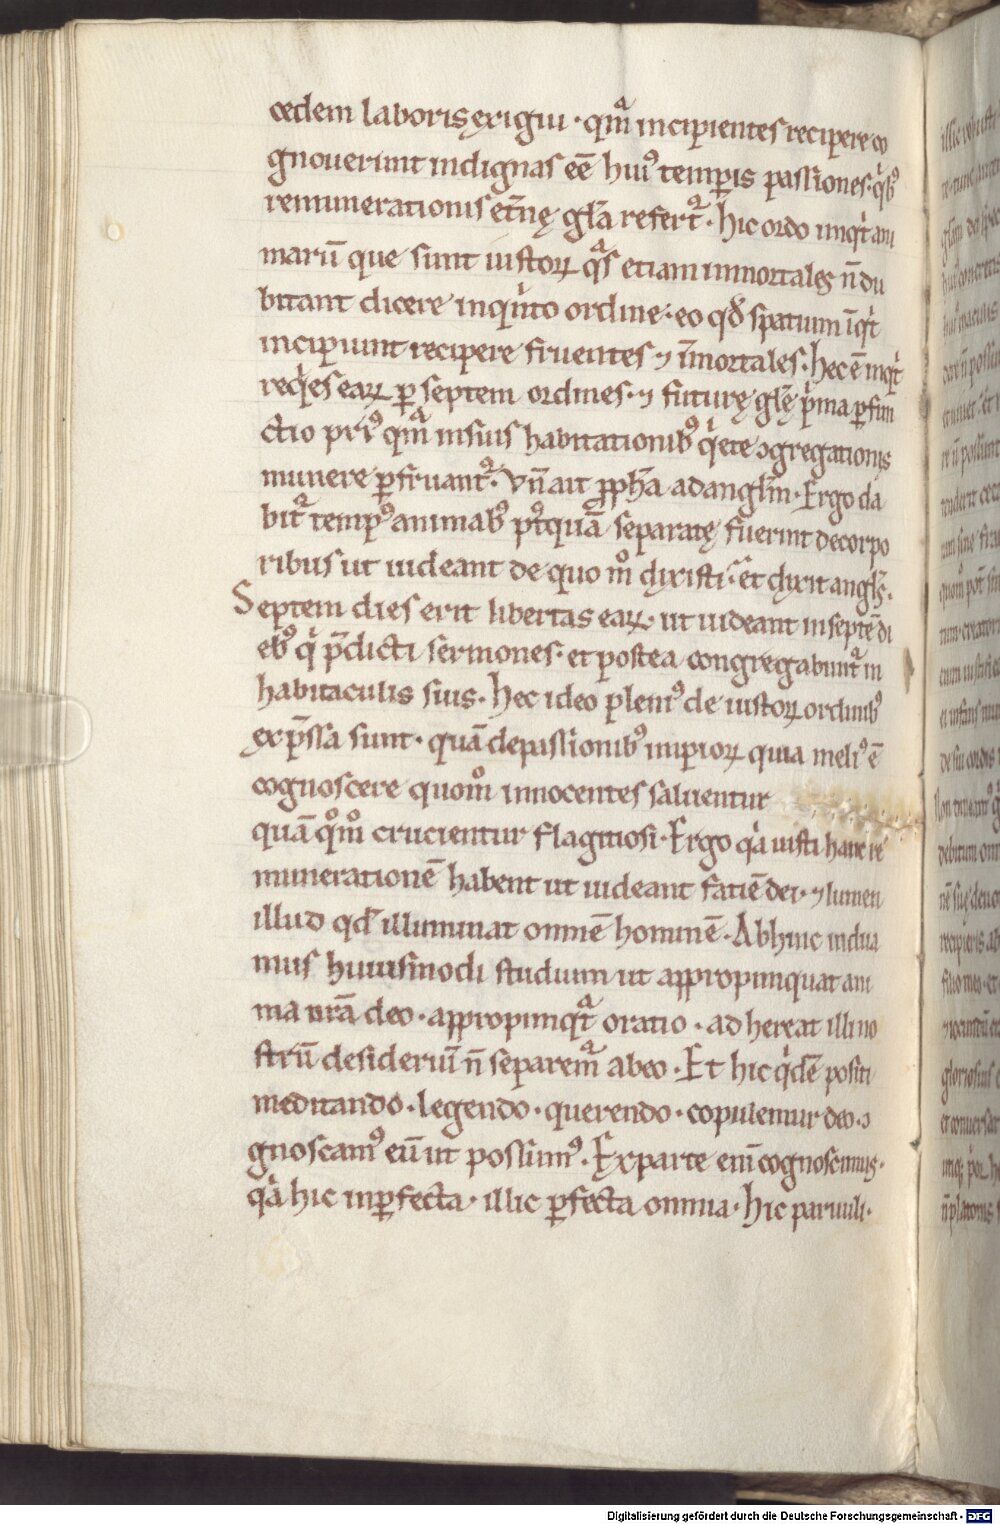 cedem laboris exigui · qm̄ incipientes recipere co
gnouerunt indignas eē hui᷒ temporis passiones · qͥb᷒
remunerationis et̄nę gl̄a refert᷑ · hic ordo inqͥt ani
marū que sunt iustoꝝ qᵃs etiam inmortales n̄ du
bitant dicere inqͥnto ordine · eo qđ spatium īqͥt
incipiunt recipere fruentes ⁊ īmortales · hec ē inqͥt
reqͥes eaꝝ ꝑ septem ordines · ⁊ futurę gl̄ę pͥma ꝑfun
ctio pri᷒ qm̄ insuis habitationib᷒ qͥete ↄgregationis
munere ꝑfruant᷑ · Vn̄ ait ꝓph̄a ad angl̄m · Ergo da
bit᷑ temp᷒ animab᷒ pt̄quā separatę fuerint de corpo
ribus ut uideant de quo m̊ dixisti · et dixit angl̄s ·
Septem dies erit libertas eaꝝ · ut uideant in septē di
eb᷒ qͥ p̄dicti sermones · et postea congregabunt᷑ in
habitaculis suis · Hec ideo pleni᷒ de iustoꝝ ordinib᷒
exp̄ssa sunt · quā de passionib᷒ impioꝝ quia meli᷒ ē
cognoscere quom̊ innocentes saluentur
quā qͦm̊ crucientur flagitiosi · Ergo qᵃ iusti hanc re
munerationē habent ut uideant faciē dei · ⁊ lumen
illud qđ illuminat omnē hominē · Abhinc indua
mus huiusmodi studium ut appropinquat ani
ma nr̄a deo · appropinqᵃt oratio · adhereat illi no
strū desideriū n̄ separemᵃ ab eo · Et hic qͥdē positi
meditando · legendo · querendo · copulemur deo · ↄ
gnoscam᷒ eū ut possum᷒ · Ex parte eni᷒ cognoscimus ·
qᵃ hic inꝑfecta · illic ꝑfecta omnia · hic paruuli ·
Digitalisierung gefördert durch die Deutsche Forschungsgemeinschaft - DFG